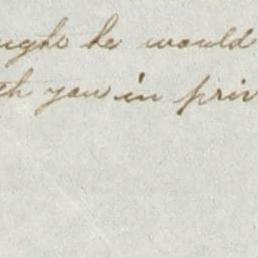 ught he would
th you in priv